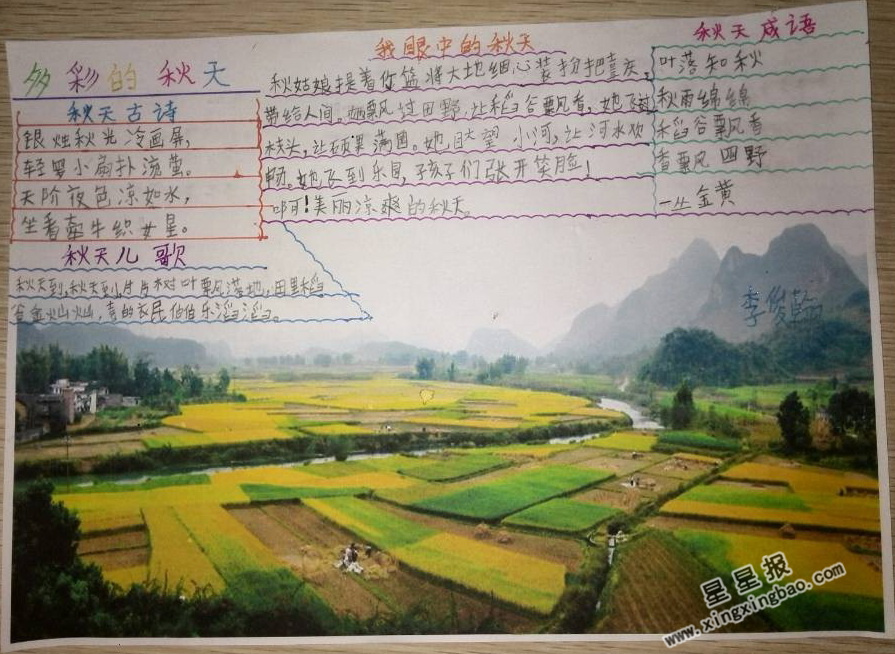 多彩的秋天
秋天古诗
银烛秋光冷画屏,
轻罗小扇扑流萤。
天阶夜色凉如水,
坐看牵牛织女星。
秋天儿歌
秋天到,秋天到,片片树叶飘落地,田里稻
谷金灿灿,喜的农民伯伯乐滔滔。
我眼中的秋天
秋姑娘提着你篮将大地细心装扮把喜庆,
带给人间。她飘过田野,让稻谷飘香,她飞过
枝头,让硕果满园。她 望 小河,让河水欢
畅。她飞到乐园,孩子们张开笑脸!
啊!美丽凉爽的秋天。
秋天成语
叶落知秋
秋雨绵绵
稻谷飘香
香飘四野
一丛金黄
李俊翰
星星报
www.xingxingbao.com